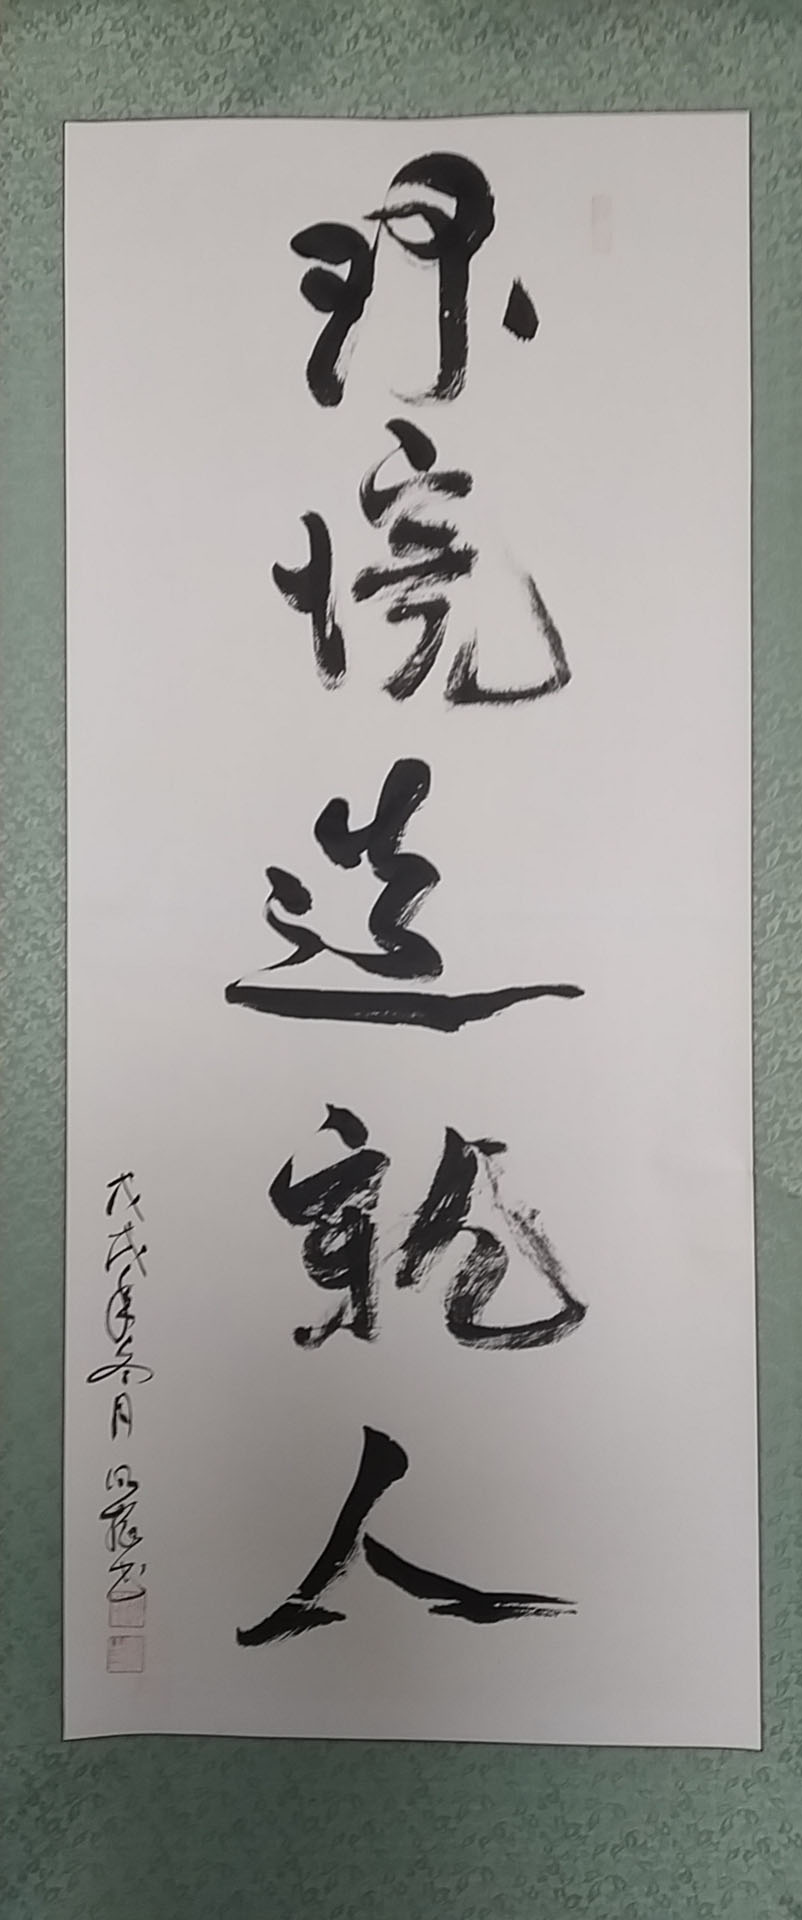 环境造就人
戊戌年冬月 书